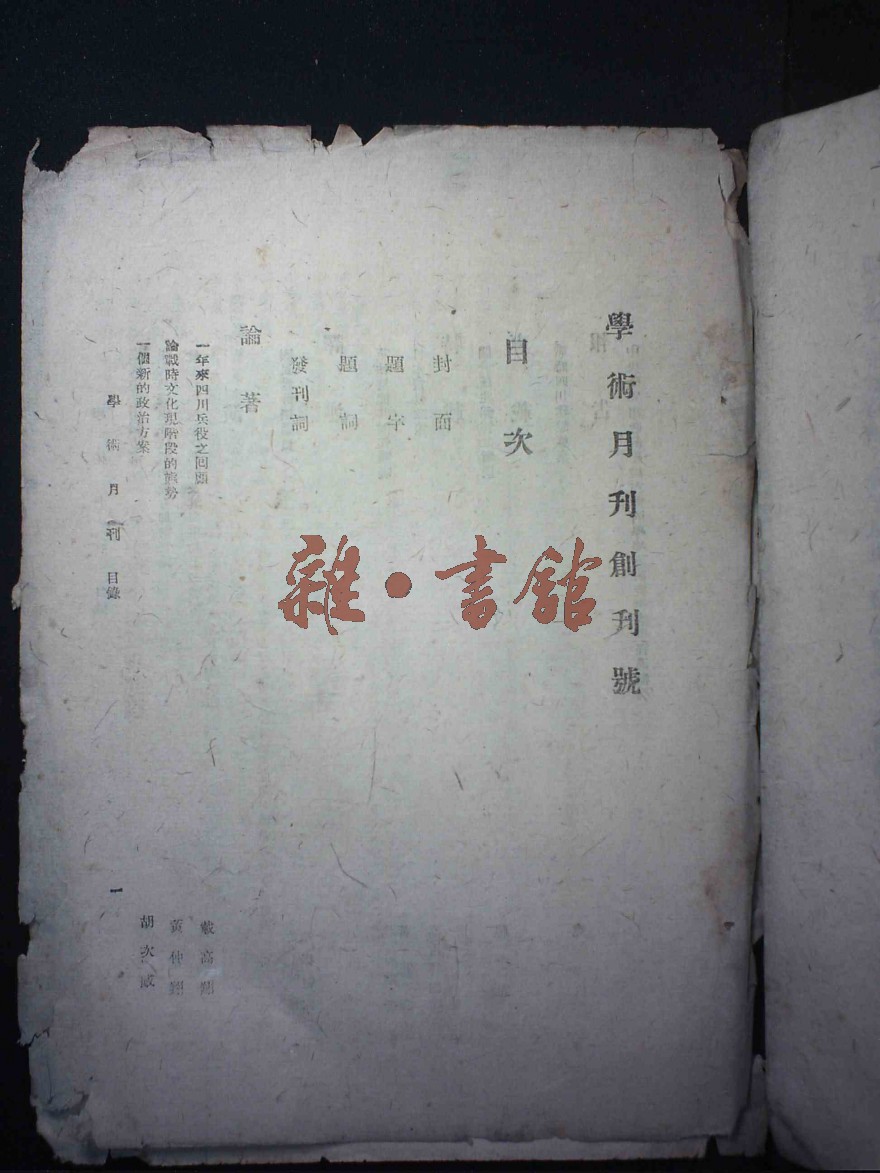 學術月刊創刊號
目次
封面
題字
題詞
發刊詞
論著
一年來四川兵役之回顧
戴高翔
論戰時文化現階段的態勢
黃仲翔
一個新的政治方案
胡次威
學術月刊 目錄
一
雜·書館